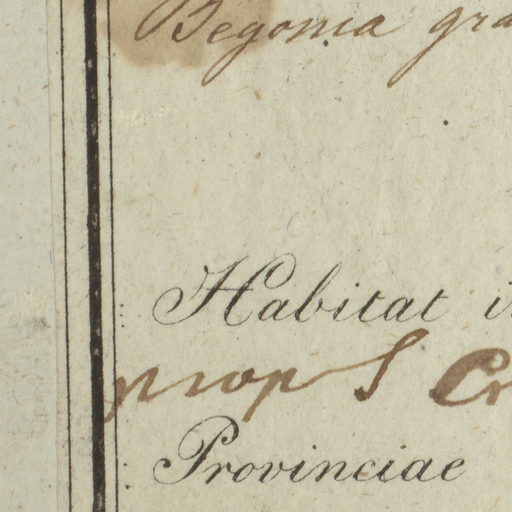 Begonia gra
Habitat i
prop S Cr
Provinciae